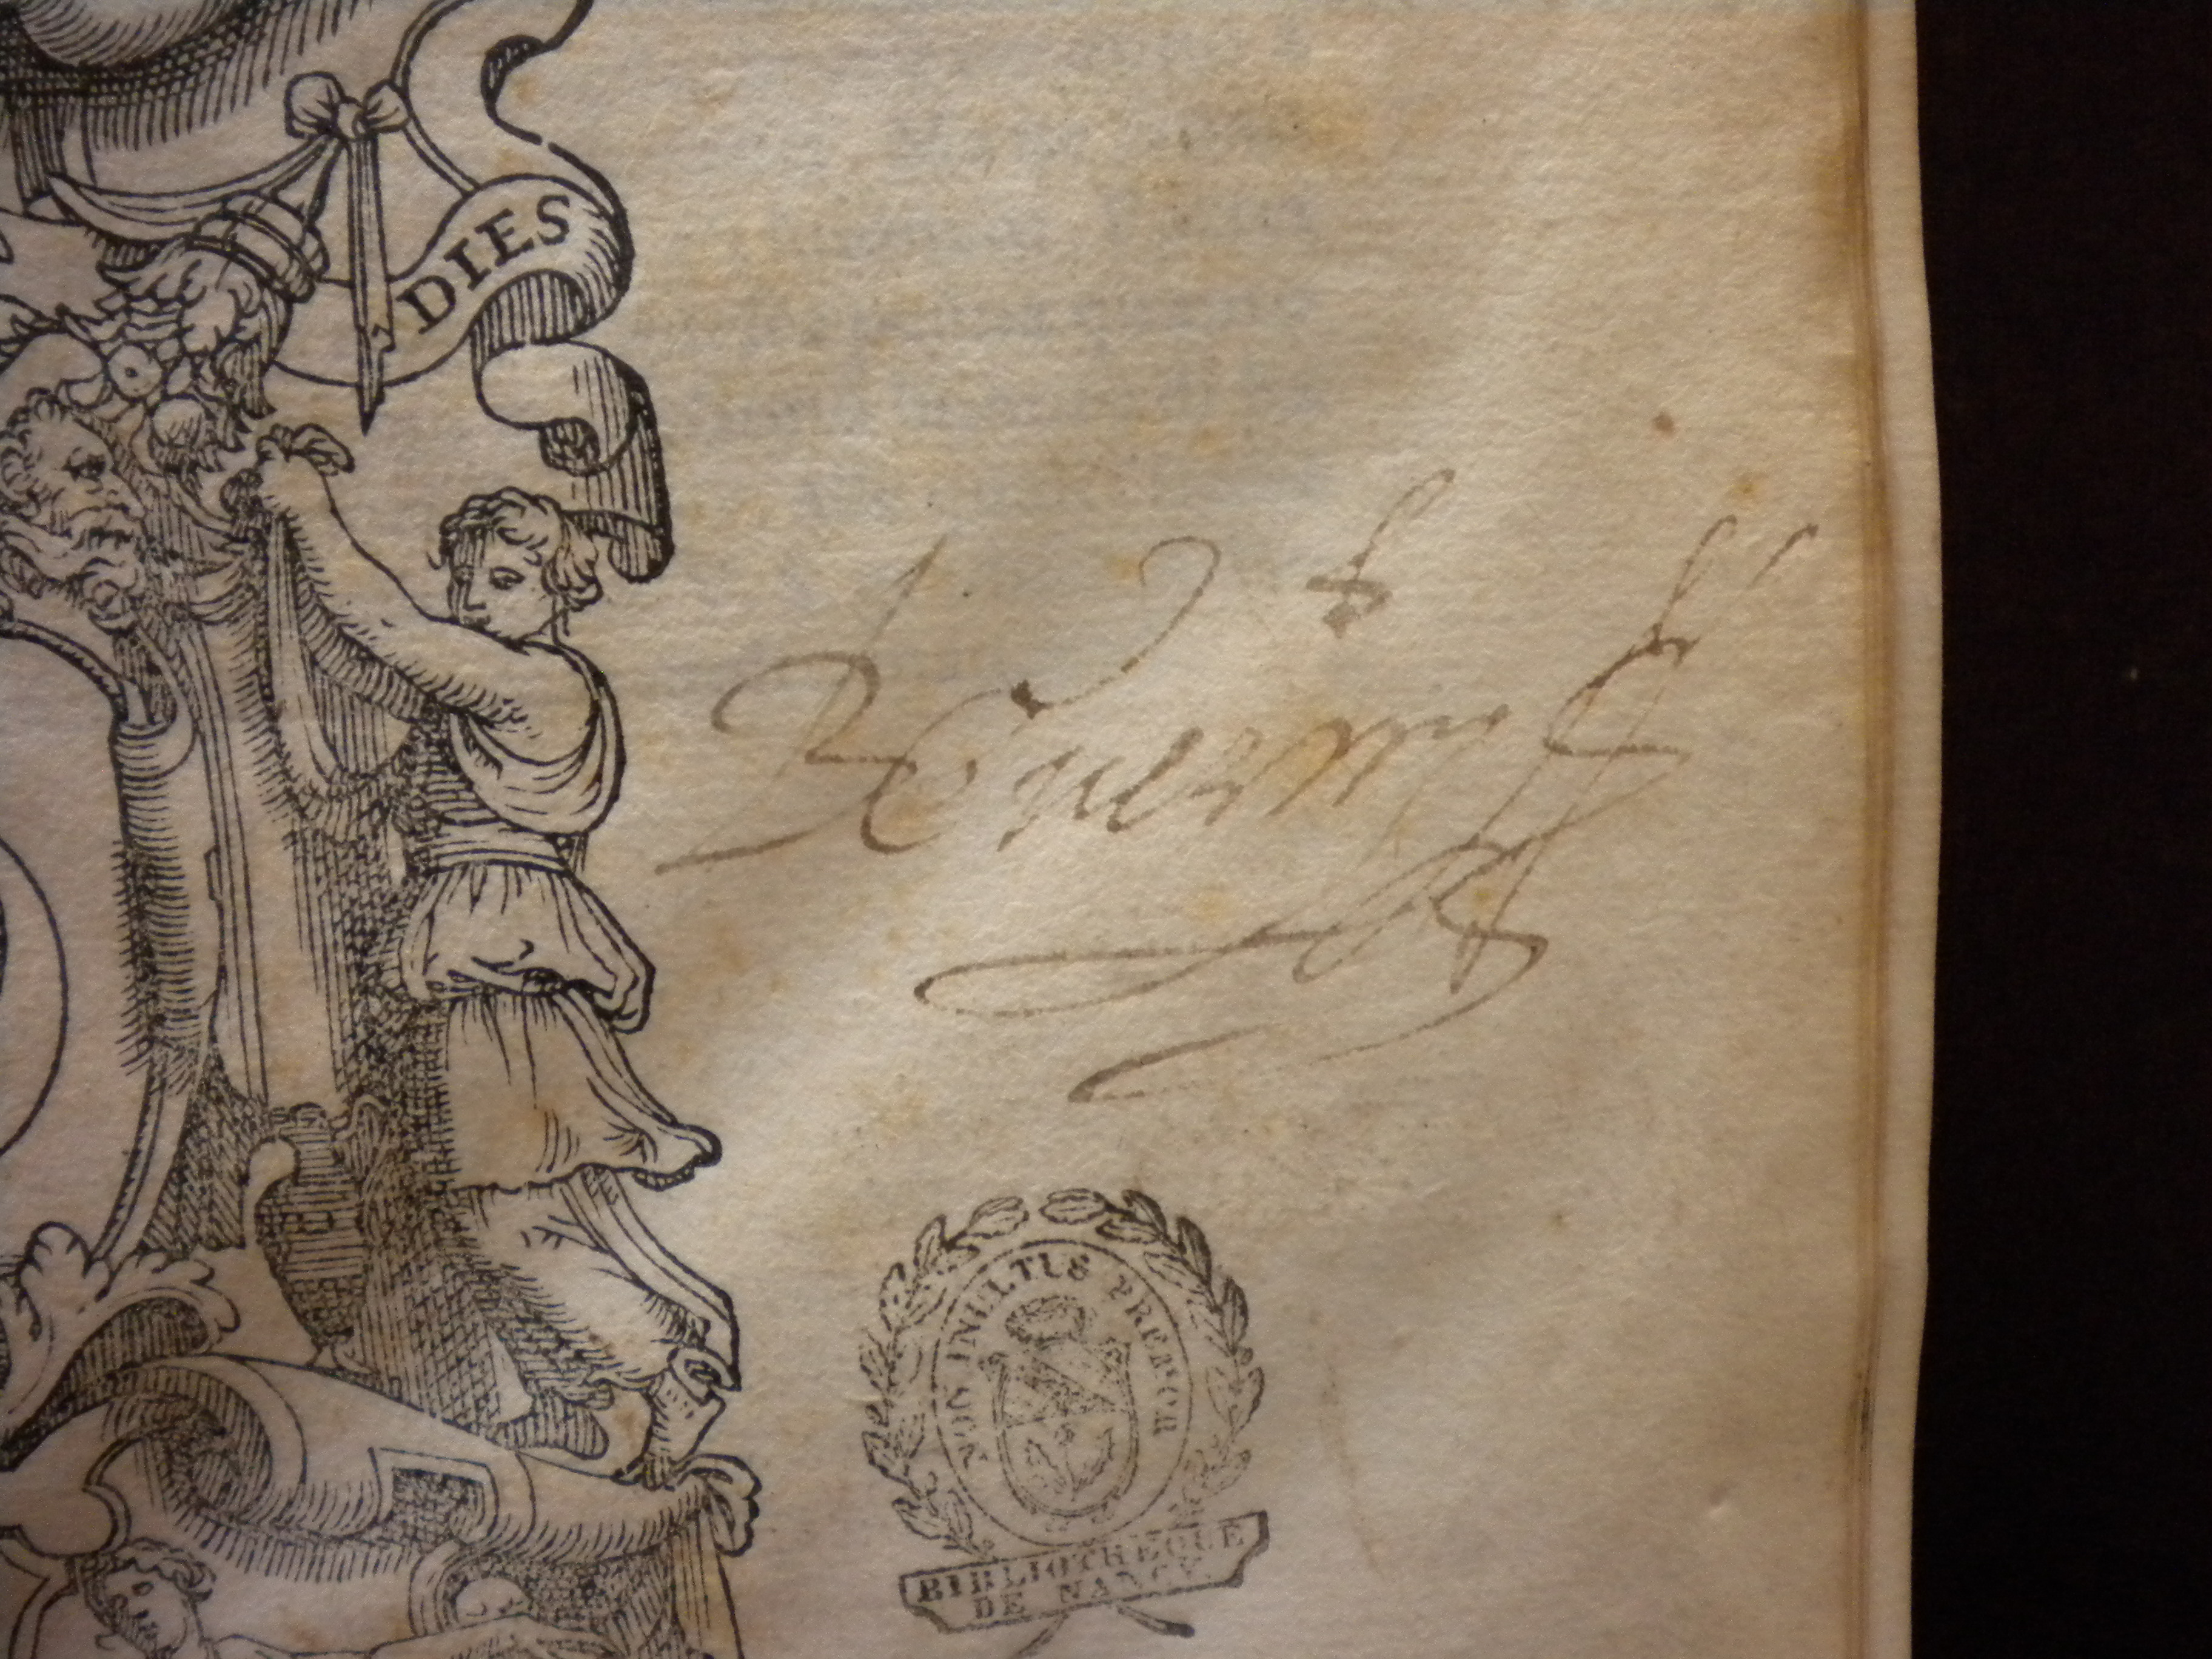 DIES
NON INULTUS PREMOR
BIBLIOTHEQUE
DE NANCY.